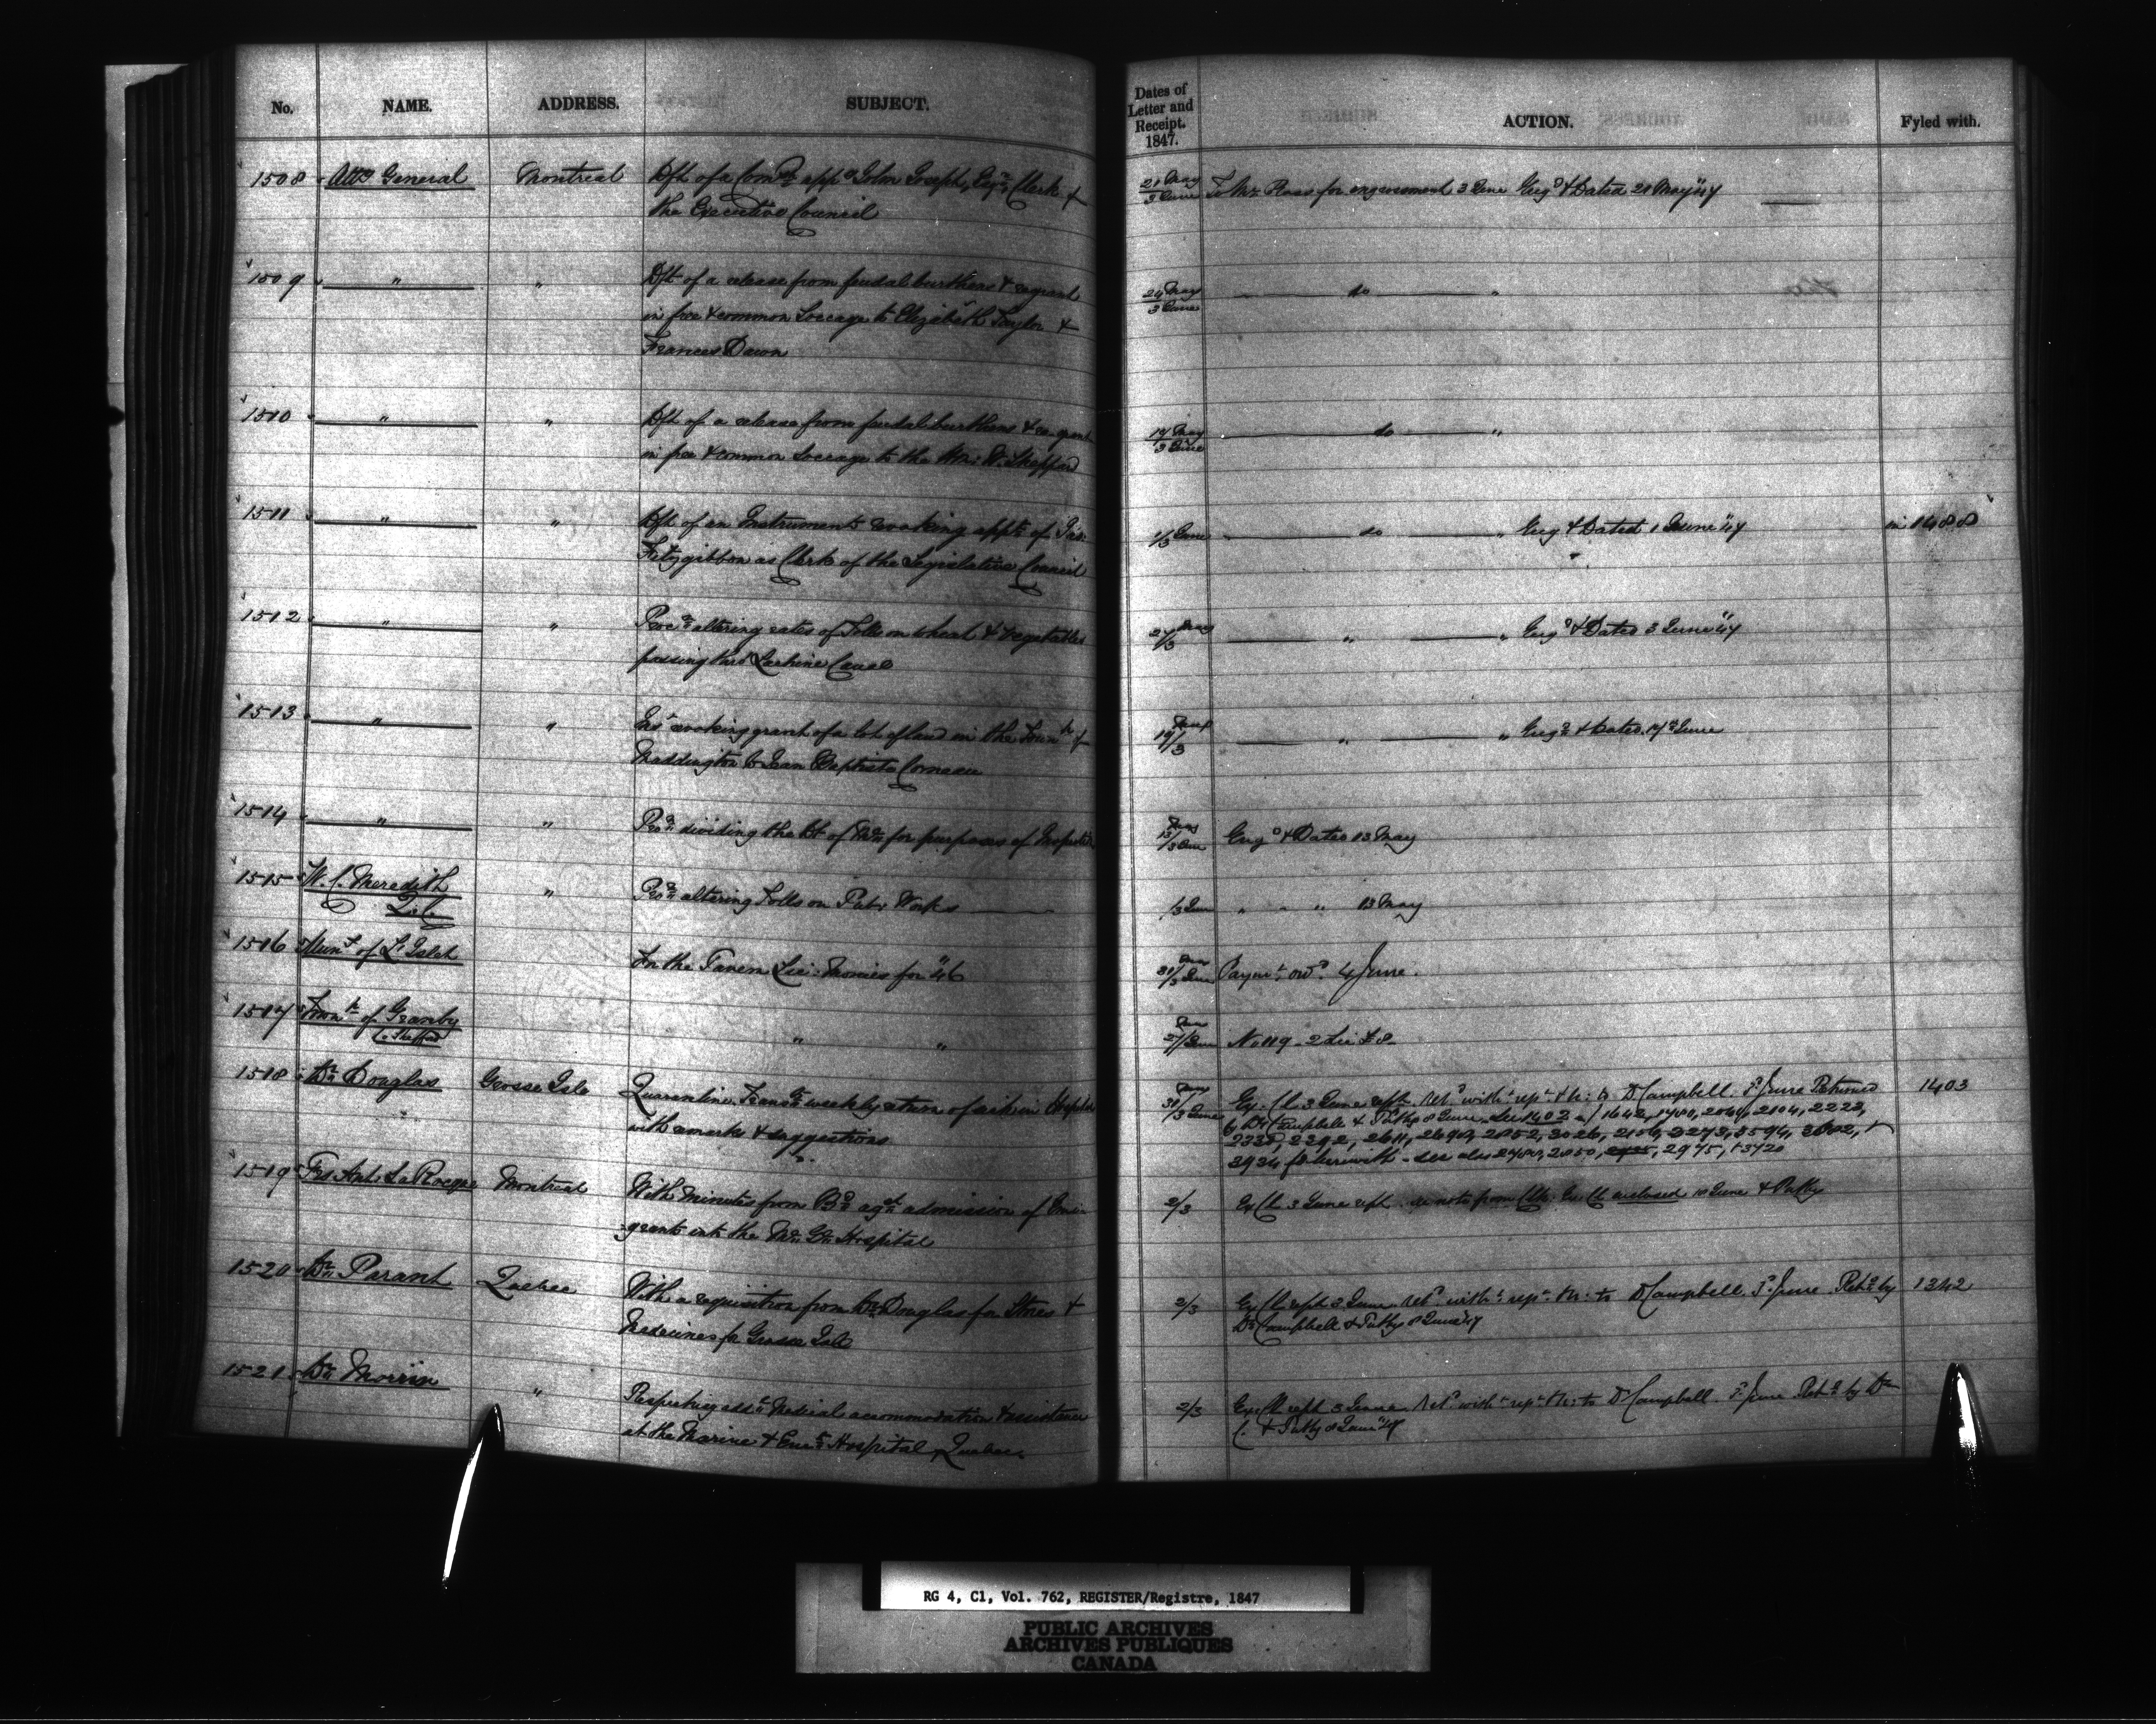 No. NAME. ADDRESS. SUBJECT.
1508 Atty General Montreal Dft of a Comn appg John Joseph, Esqr. Clerk of
the Executive Council
1509 " " Dft of a release from feudal burthens & regrant
in free & common Soccage to Elizabeth Taylor &
Frances Dawn
1510 " " Dft of a release from feudal burthens & re-grant
in free & common Soccage to the Hon: W. Sheppard
1511 " " Dft of an Instrument revoking appt. of Jas.
Fitzgibbon as Clerk of the Legislative Council
1512 " " altering rates of Tolls on wheat & vegetables
passing thro' Lachine Canal
1513 " " revoking grant of a lot of land in the Townh of
Maddington to Jean Baptiste Corneau
1514 " " dividing the Dt of for purposes of
1515 W. C. Meredith " altering Tolls on Pub: Works
Q.C.
1516 Munt of L'Islet For the Tavern Lic: Monies for "46
1517 Townh of Granby " "
Co. Shefford
1518 Dr. Douglas Grosse Isle Quarantine. weekly return of sick in Hospital
" with remarks & suggestions
1519 Frs Ant: La Rocque Montreal With Minutes from Bd. agst. admission of Emi-
grants into the Ml. Gl. Hospital
1520 Dr. Parant Quebec With a requisition from Dr. Douglas for Stores &
Medicines for Grosse Isle
1521 Dr. Morrin " Respecting addl. Medical accommodation & assistance
at the Marine & Emt. Hospital Quebec.
Dates of
Letter and
Receipt.
1847.
ACTION. Fyled with.
21 May
3 June To Mr. Ross for engrossment 3 June Engd & Dated 21 May "47
24 May
3 June do "
17 May
3 June do "
1/3 June do " Eng & Dated 1 June "47 in 1488
27 May/3 " " Engd & Dated 3 June "47
19/3 " " Engd & Dated 17 June
13 May/3 June Engd & Dated 13 May
/3 June " " 13 May
31/3 June Paymt. ordd. 4 June.
27/3 June No 119 - 2 Lic £8.
31/3 June Ex. Cl. 3 June rept. Retd. with rept. &c: to Dr Campbell. 5 June Returned 1403
by Dr. Campbell & Putby 8 June. See 1402 1642, 1780, 2104, 2223,
2392, 2611, 2852, 3026, 2156, 3273, 3594,
herewith - see also 2850, 2975, 
2/3 Ex. Cl. 3 June rept. see note from Clk: Ex. Cl. enclosed 10 June & Putby
2/3 Ex. Cl. rept 3 June. Retd. with rept. &c: to Dr Campbell. 5 June. Retd. by 1342
Dr. Campbell & Putby 8 June "47
2/3 Ex. Cl. rept 3 June. Retd. with rept &c: to Dr Campbell. 5 June. Retd. by Dr.
C. & Putby 8 June "47
RG 4, C1, Vol. 762, REGISTER/Registre, 1847
PUBLIC ARCHIVES
ARCHIVES PUBLIQUES
CANADA